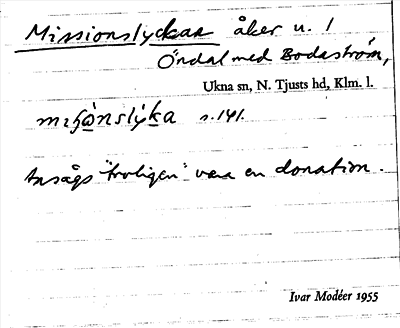 Missionslyckan åker u. 1
Öndal med Bodaström,
Ukna sn, N. Tjusts hd, Klm. l.
s. 141.
Ansågs "troligen" vara en donation.
Ivar Modéer 1955